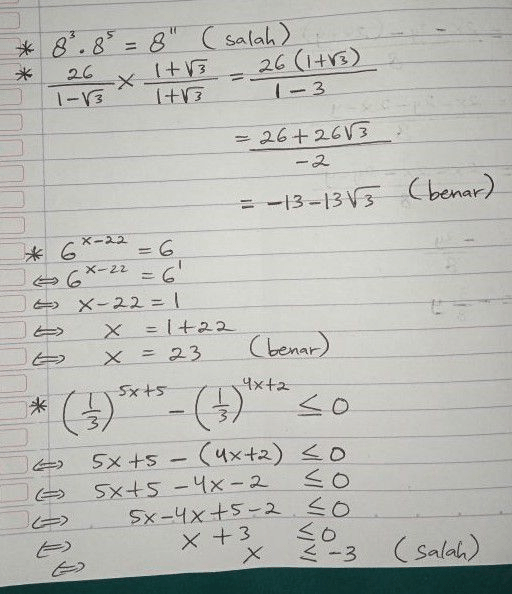 * 8³ . 8⁵ = 8¹¹ (salah)
* 26/(1-√3) × (1+√3)/(1+√3) = 26 (1+√3)/(1-3)
= (26+26√3)/(-2)
= -13-13√3 (benar)
* 6^(x-22) = 6
⇔ 6^(x-22) = 6¹
⇔ x-22 = 1
⇔ x = 1+22
⇔ x = 23 (benar)
* (1/3)^(5x+5) - (1/3)^(4x+2) ≤ 0
⇔ 5x+5 - (4x+2) ≤ 0
⇔ 5x+5 -4x-2 ≤ 0
⇔ 5x-4x+5-2 ≤ 0
⇔ x + 3 ≤ 0
⇔ x ≤ -3 (salah)